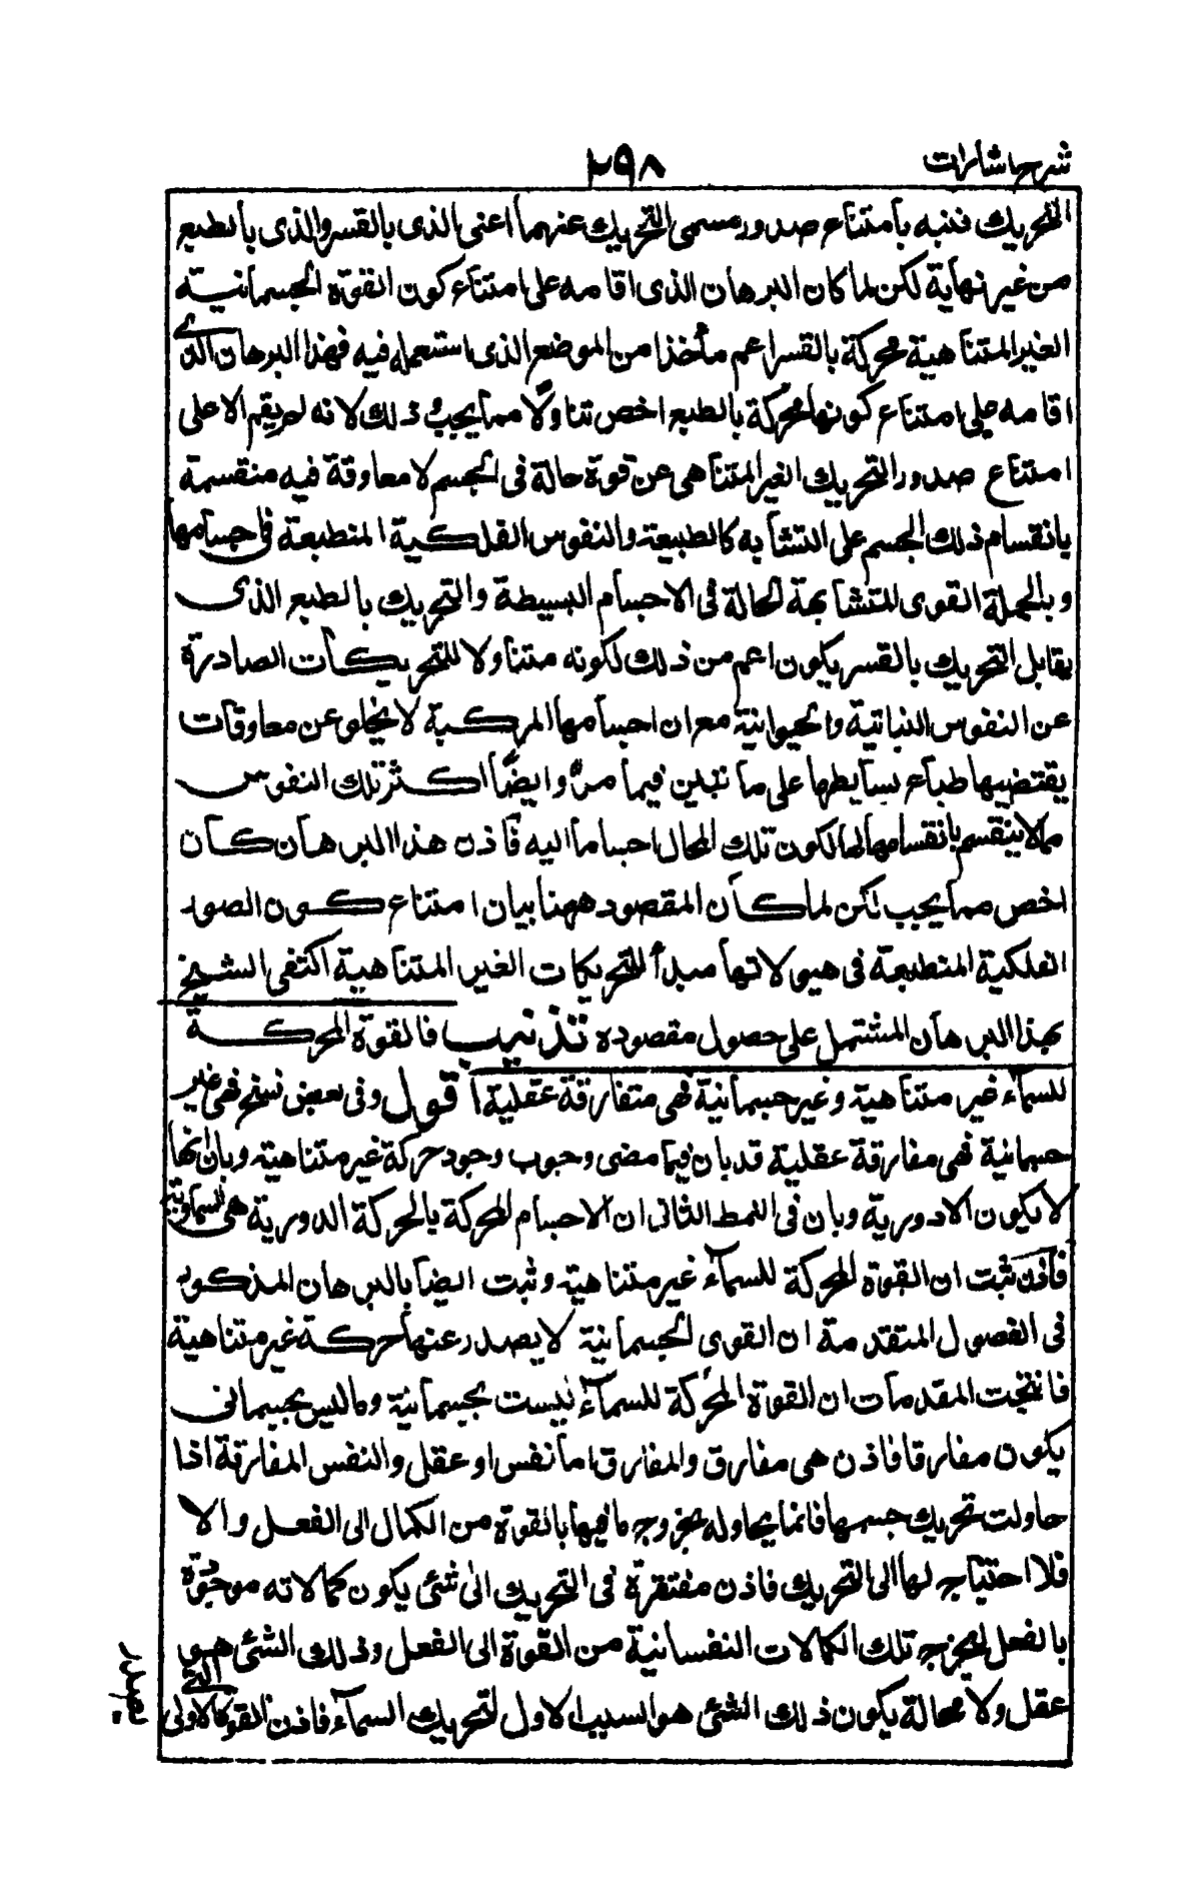 شرح اشارات
٢٩٨
التحريك فنبه بامتناع صدور مسمى التحريك عنهما اعنى الذى بالقسر والذى بالطبع
من غير نهاية لكن لما كان البرهان الذى اقامه على امتناع كون القوة الجسمانية
الغير المتناهية محركة بالقسر اعم مأخذا من الموضع الذى استعمله فيه فهذا البرهان الذى
اقامه على امتناع كونها محركة بالطبع اخص تناولا مما يجب و ذلك لانه لم يقم الا على
امتناع صدور التحريك الغير المتناهى عن قوة حالة فى الجسم لا معاوقة فيه منقسمة
بانقسام ذلك الجسم على التشابه كالطبيعة والنفوس الفلكية المنطبعة فى اجسامها
وبالجملة القوى المتشابهة الحالة فى الاجسام البسيطة والتحريك بالطبع الذى
يقابل التحريك بالقسر يكون اعم من ذلك لكونه متناولا للتحريكات الصادرة
عن النفوس النباتية والحيوانية مع ان اجسامها المركبة لا يخلو عن معاوقات
يقتضيها طبايع بسايطها على ما تبين فيما مر وايضا اكثر تلك النفوس
مما لا ينقسم بانقسام محالها لكون تلك المحال اجساما الية فاذن هذا البرهان كان
اخص مما يجب لكن لما كان المقصود ههنا بيان امتناع كون الصور
الفلكية المنطبعة فى هيولاتها مبدأ للتحريكات الغير المتناهية اكتفى الشيخ
بهذا البرهان المشتمل على حصول مقصوده تذنيب فالقوة المحركة
للسماء غير متناهية وغير جسمانية فهى متفارقة عقلية اقول وفى بعض نسخ فهى غير
جسمانية فهى مفارقة عقلية قد بان فيما مضى وجوب وجود حركة غير متناهية وبان انها
لا يكون الا دورية وبان فى النمط الثانى ان الاجسام المحركة بالحركة الدورية هى السماوية
فاذن ثبت ان القوة المحركة للسماء غير متناهية وثبت ايضا بالبرهان المذكور
فى الفصول المتقدمة ان القوى الجسمانية لا يصدر عنها حركة غير متناهية
فانتجت المقدمات ان القوة المحركة للسماء ليست بجسمانية وما ليس بجسمانى
يكون مفارقا فاذن هى مفارق والمفارق اما نفس او عقل والنفس المفارقة اذا
حاولت تحريك جسمها فانما يحاوله بخروج ما فيها بالقوة من الكمال الى الفعل والا
فلا احتياج لها الى التحريك فاذن مفتقرة فى التحريك الى شئ يكون كمالاته موجودة
بالفعل ليخرج تلك الكمالات النفسانية من القوة الى الفعل وذلك الشئ هو
عقل ولا محالة يكون ذلك الشئ هو السبب الاول لتحريك السماء فاذن القوة الاولى التى
يصدر